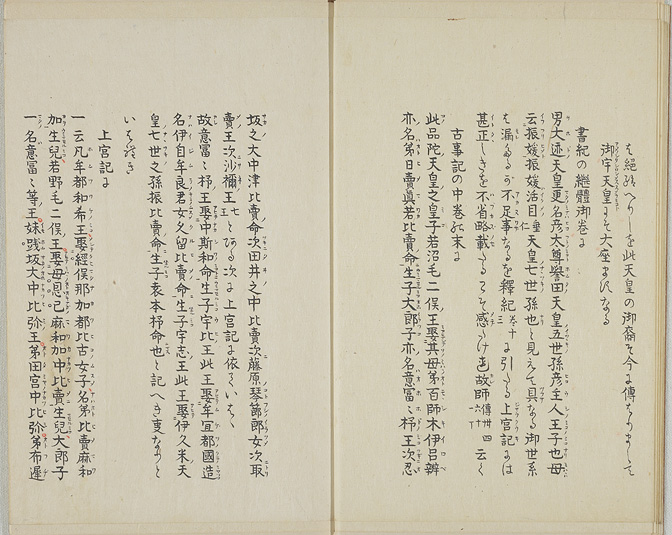 は絶給へりしを此天皇の御裔そ今に傳はりまして
御宇天皇にそ大座ましける
書紀の繼體御巻に
男大迹天皇更名彦太尊誉田天皇五世孫彦主人王子也母
云振媛振媛活目垂仁天皇七世孫也と見えて具なる御世系
は漏たるか不足事なるを釋紀巻十三に引たる上宮記には
甚正しきを不省略載たるこそ感たけれ故師傳卅四六十 云く
古事記の中巻の末に
此品陀天皇之皇子若沼毛二俣王娶其母弟百師木伊呂辨
亦名弟日賣真若比賣命生子大郎子亦名意富々杼王次忍
坂之大中津比賣命次田井之中比賣次藤原琴節郎女次取
賣王次沙禰王七王とある次に上宮記に依ていはゝ
故意富々杼王娶中斯和命生子宇比王此王娶牟宜都國造
名伊自牟良君女久留比賣命生子宇志王此王娶伊久米天
皇七世之孫振比賣命生子袁本杼命也と記へき事なりと
いはれき
上宮記に
一云凡牟都和希王娶經俣那加都比古女子名弟比賣麻和
加生兒若野毛二俣王娶母恩己麻和加中比賣生兒大郎子
一名意富々等王妹踐坂大中比弥王弟田宮中比弥弟布遲